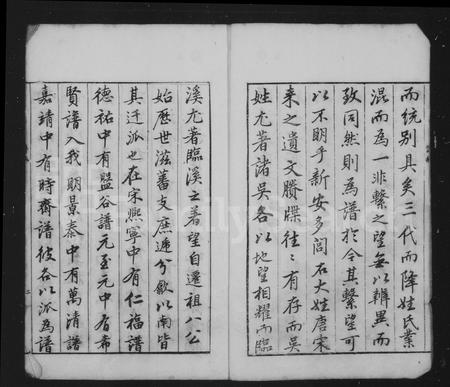 而统别具矣三代而降姓氏業
混而為一非繫之望無以辨異而
致同然則為譜於今其繫望可
以不明乎新安多閥右大姓唐宋
来之遺文賸牒往〻有存而吴
姓尤著諸吴各以地望相耀而臨
溪尤著臨溪之著望自遷祖八公
始歷世滋蕃支庶遞分歙以南皆
其迁派也在宋熙寧中有仁福譜
德祐中有盟谷譜元至元中有希
賢譜入我明景泰中有萬清譜
嘉靖中有時齋譜彼各以派為譜
二